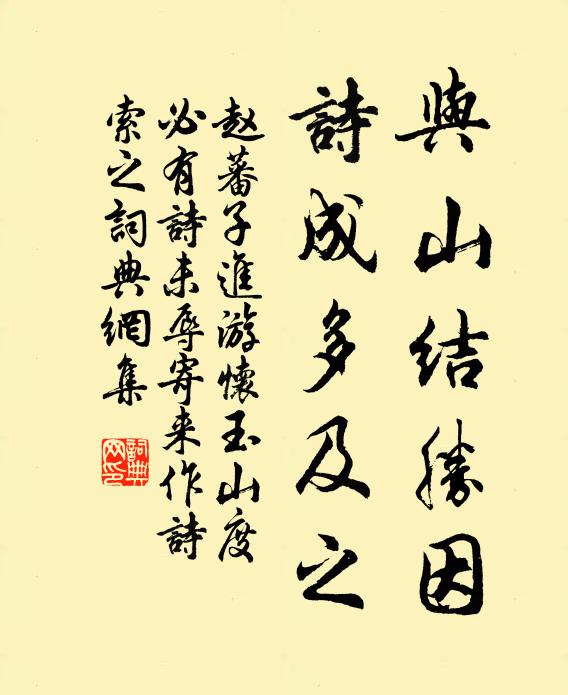 與山结勝因
詩成多及之
赵蕃子進游懷玉山度
必有詩未辱寄来作詩
索之詞典網集
詞典网印